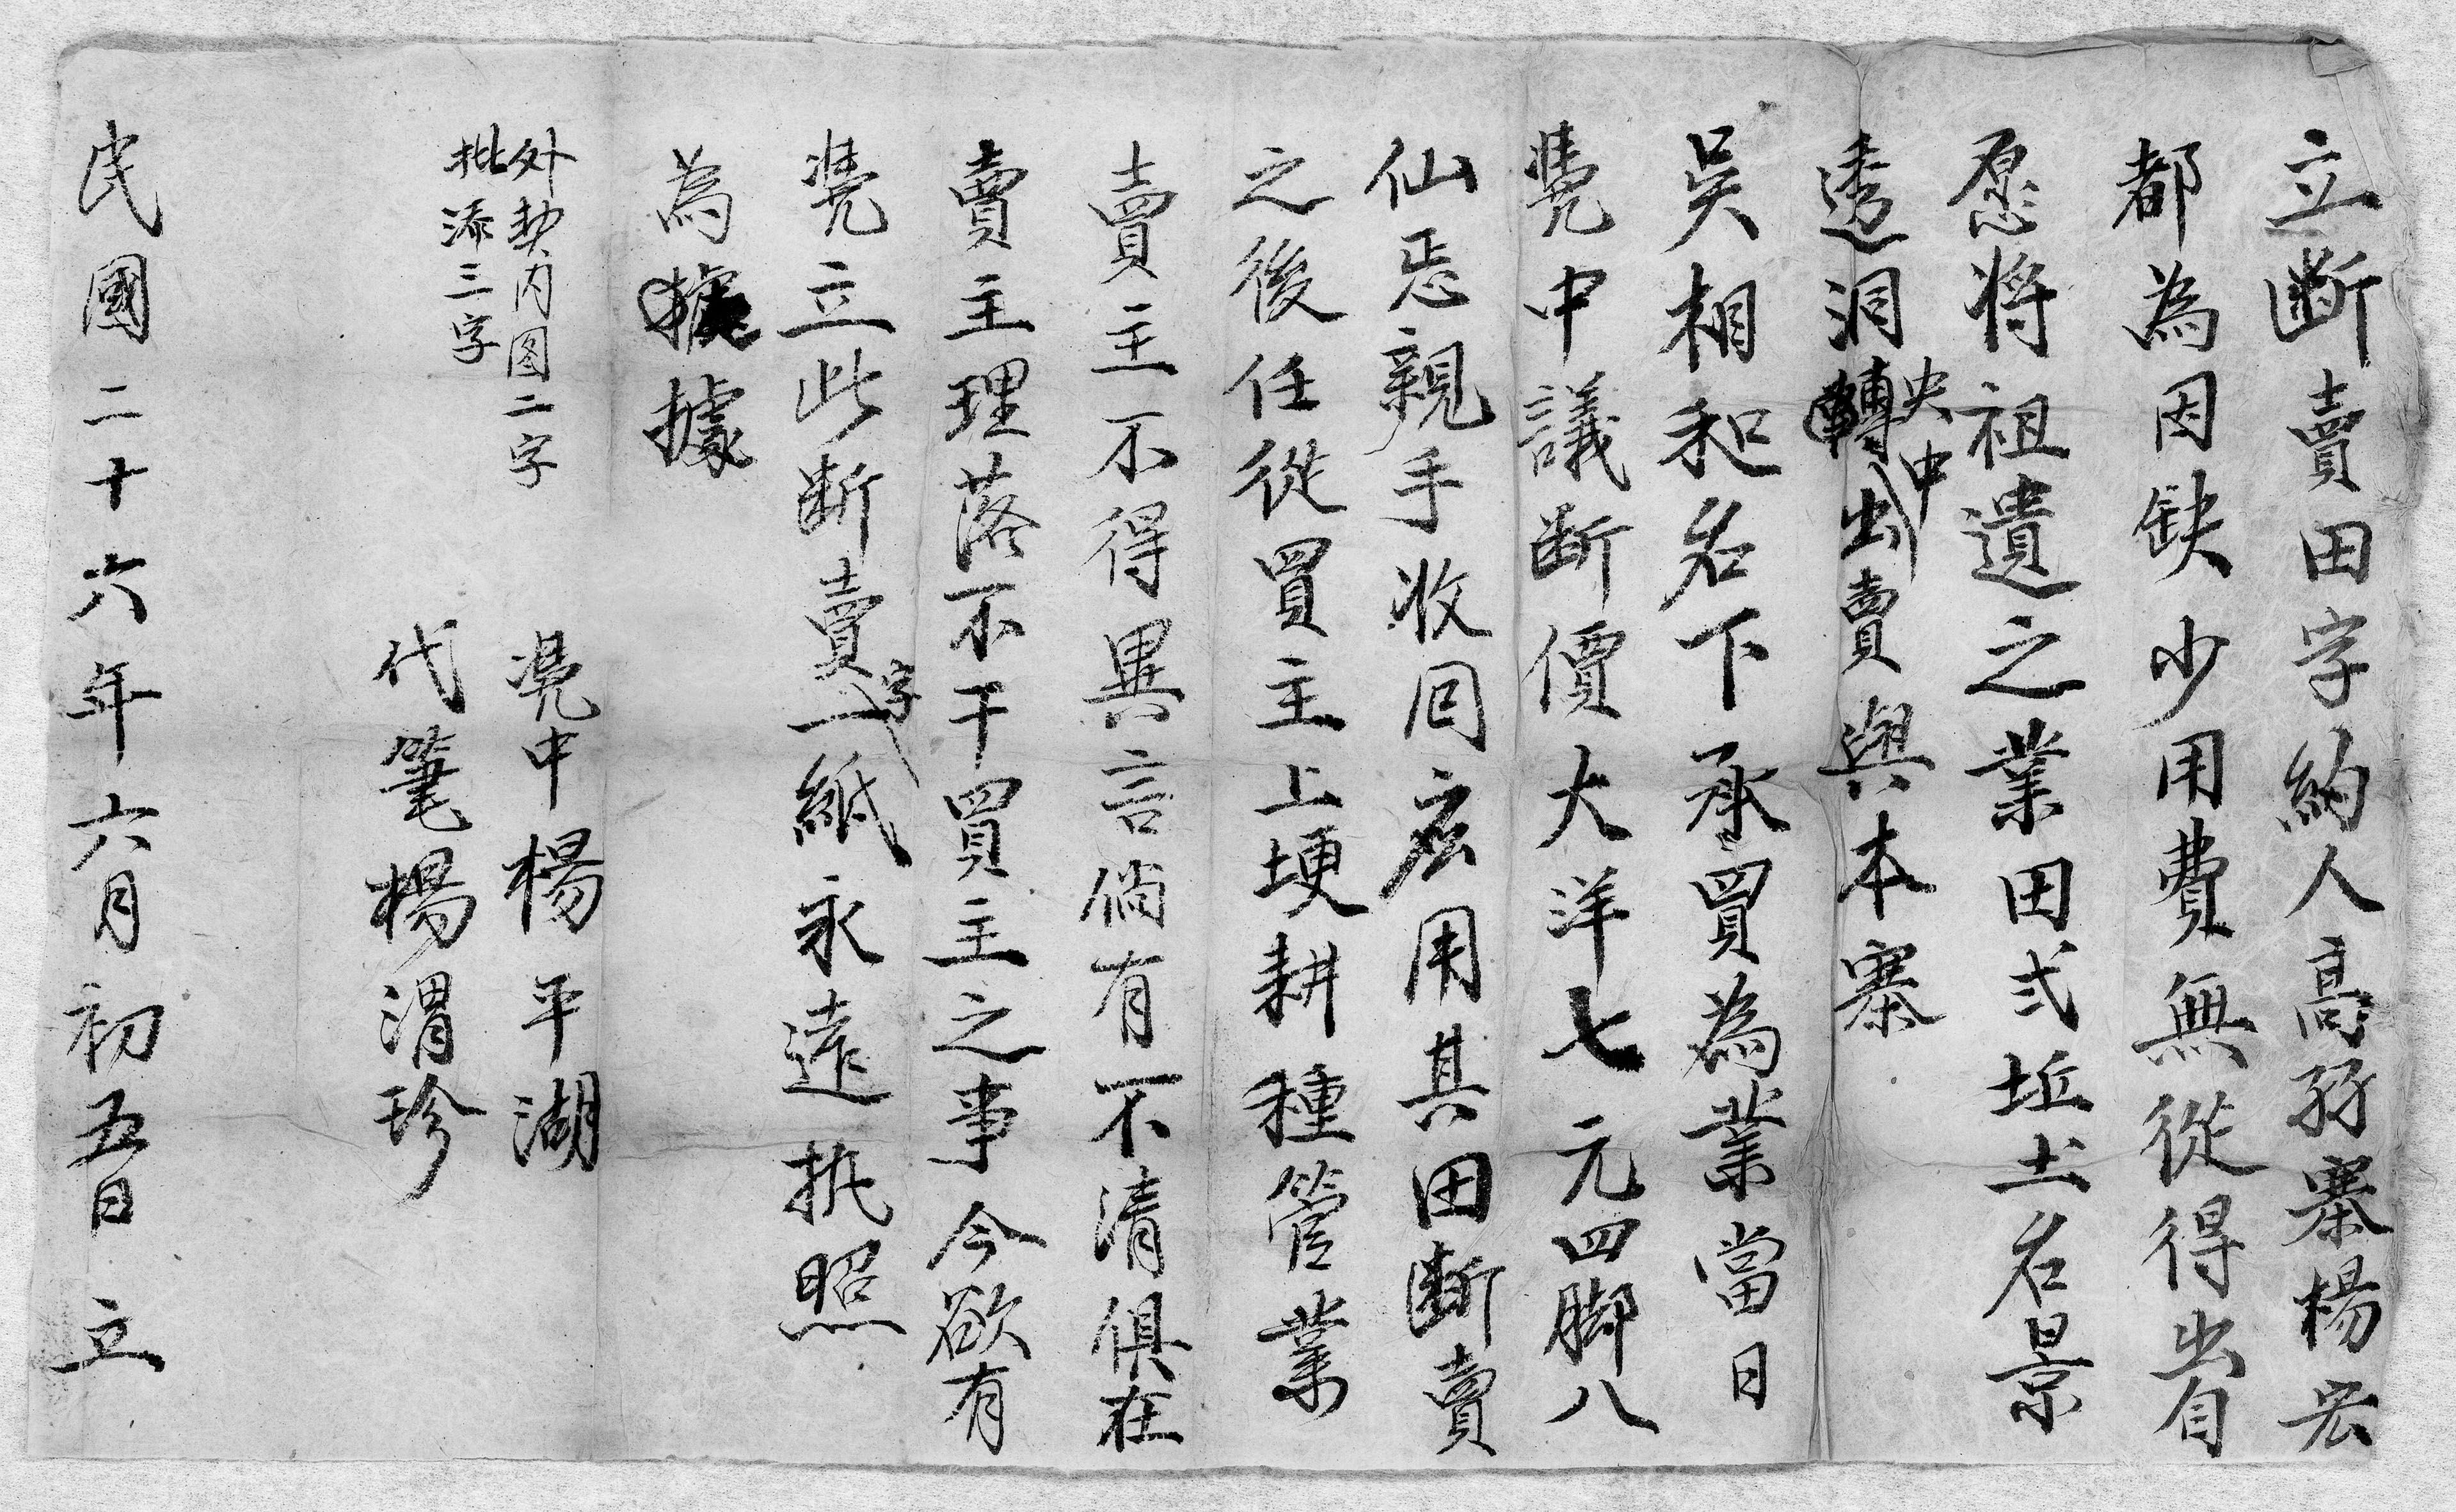 立斷賣田字約人高孖寨楊宏
都為因缺少用費無從得出自
愿将祖遺之業田弍坵土名景
透洞央中出賣與本寨
吳相和名下承買為業當日
凴中議断價大洋七元四脚八
仙恁親手收回應用其田斷賣
之後任從買主上埂耕種管業
賣主不得異言倘有不清俱在
賣主理落不干買主之事今欲有
凴立此断賣字一紙永遠执照
為據
外契内图二字
批添三字
凴中楊平湖
代筆楊渭珍
民國二十六年六月初五日立